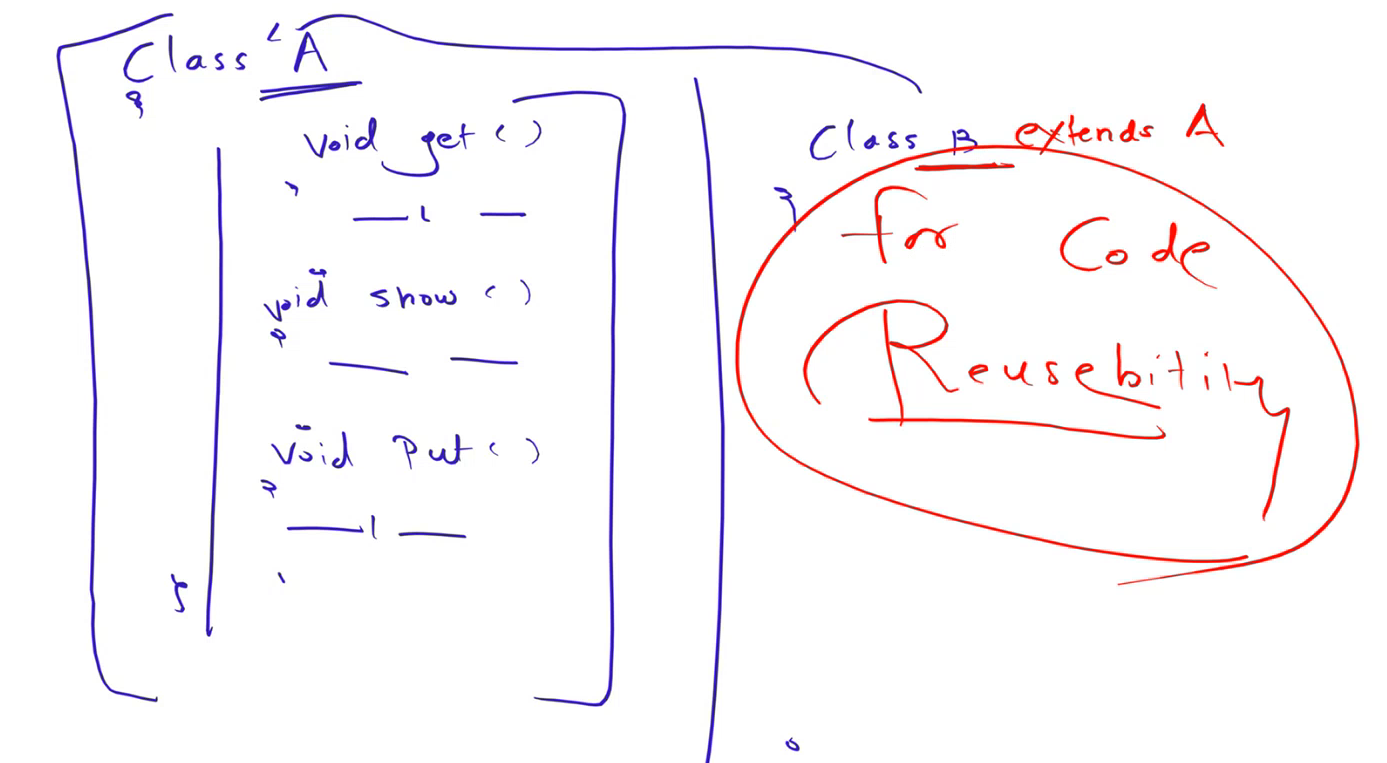 Class A
{
void get ()
void show ()
void Put ()
}
Class B extends A
{
for Code
Reusebitily